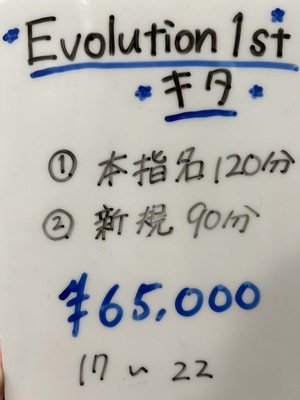 Evolution 1st
キタ
① 本指名 120分
② 新規 90分
¥65,000
17〜22